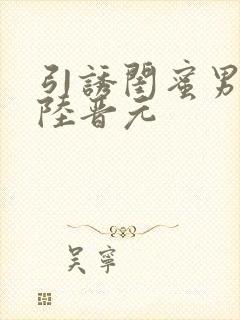 引誘閨蜜男
陸晋元
吴寧